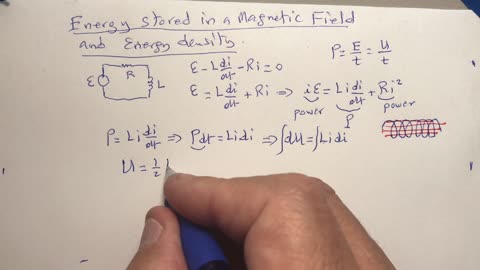 Energy stored in a Magnetic Field
and Energy density.
P = E/t = U/t
R
ε
L
ε - L di/dt - Ri = 0
ε = L di/dt + Ri ⇒ iε = Li di/dt + Ri²
power P power
P = Li di/dt ⇒ Pdt = Li di ⇒ ∫dU = ∫Li di
U = 1/2